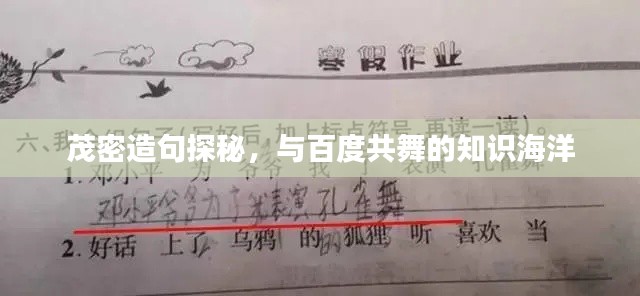 寒假作业
六、我会组句子(写好后，加上标点符号，再读一读)。
茂密造句探秘，与百度共舞的知识海洋
1. 邓小平 为 爷爷 我 了 表演 孔雀舞
邓小平爷爷为我表演孔雀舞
2. 好话 上了 乌鸦 的 狐狸 听 喜欢 当